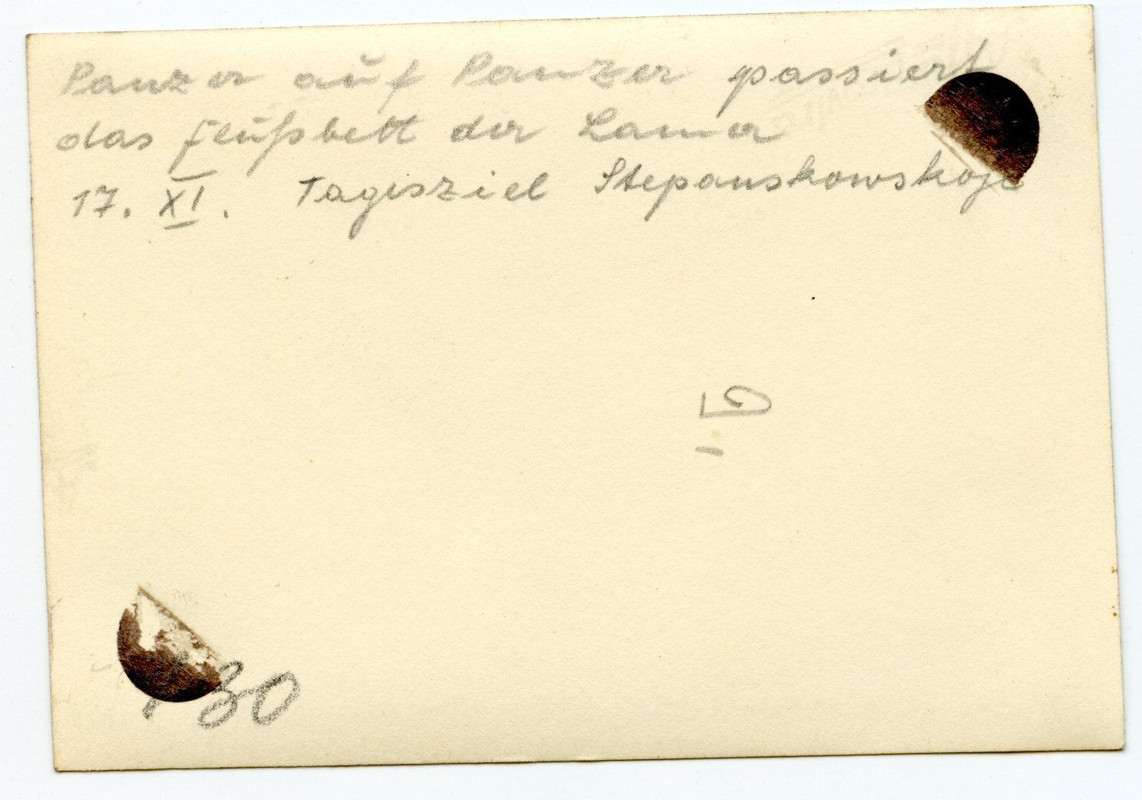 Panzer auf Panzer passiert
das Flußbett der Lama
17. XI. Tagesziel Stepankowskoje
30